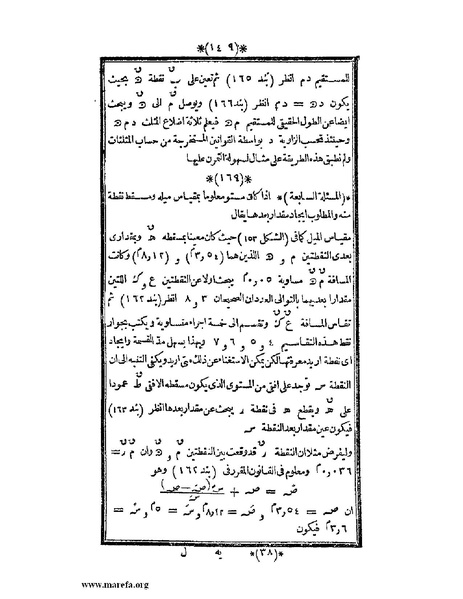 *(١٤٩)*
للمستقيم د م انظر (بند ١٦٥) ثم نعين على نقطة بحيث
يكون د = د م انظر (بند ١٦٦) ويوصل م الى ويبحث
ايضا عن الطول الحقيقى للمستقيم م فيعلم ثلاثة اضلاع المثلث د م
وحينئذ تحسب الزاوية د بواسطة القوانين المستخرجة من حساب المثلثات
ولم نطبق هذه الطريقة على مثال لسهولة التمرن عليها
*(١٦٩)*
*(المسئلة السابعة)* اذا كان مستو معلوما بمقياس ميله ومسقط نقطة
منه والمطلوب ايجاد مقدار بعدها يقال
مقياس الميل كما فى (الشكل ١٥٣) حيث كان معينا بمسقطه وبمقدارى
بعدى النقطتين م و اللذين هما (٣٫٥٤) و (٨٫١٢) وكانت
المسافة مساوية ٠٫٠٥ يبحث اولا عن النقطتين ع و ك اللتين
مقدارا بعديهما بالتوالى العددان الصحيحان ٣ و ٨ انظر (بند ١٦٢) ثم
تقاس المسافة ع ك وتقسم الى خمسة اجزاء متساوية ويكتب بجوار
نقط هذه التقاسيم ٤ و ٥ و ٦ و ٧ وبهذا يسهل مد القسمة وايجاد
اى نقطة اريد معرفتها لكن يمكن الاستغناء عن ذلك متى اريد ويكتفى التنبه الى ان
النقطة توجد على افق من المستوى الذى يكون مسقطه الافقى ط عمودا
على ويقطع فى نقطة ر يبحث عن مقدار بعدها انظر (بند ١٦٣)
فيكون عين مقدار بعد النقطة
وليفرض مثلا ان النقطة ر قد وقعت بين النقطتين م و وان م ر =
٠٫٠٣٦ ومعلوم فى القانون المقرر فى (بند ١٦٢) وهو
صَ = صہ +
ان صہ = ٣٫٥٤ و = ٨٫١٢ و = ٥ و =
٣٫٦ فيكون
*(٣٨)* يه ل
www.marefa.org